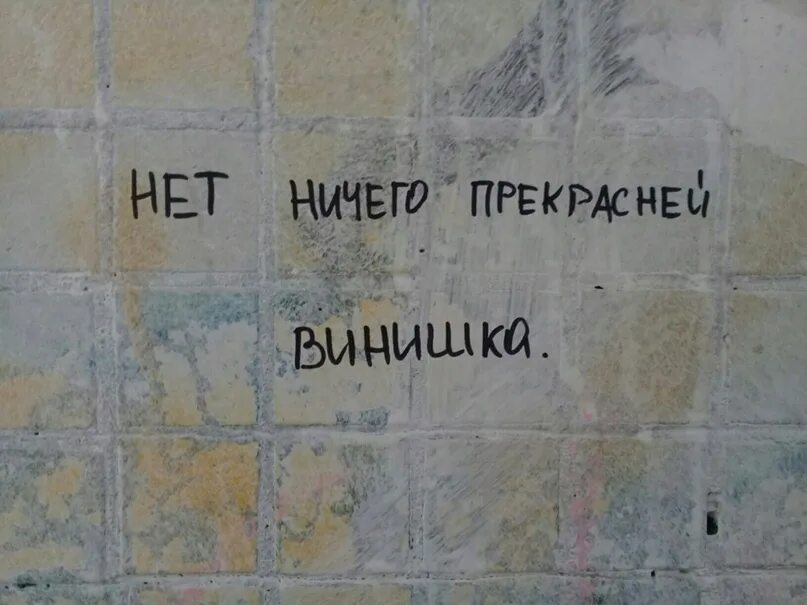 НЕТ НИЧЕГО ПРЕКРАСНЕЙ
ВИНИШКА.